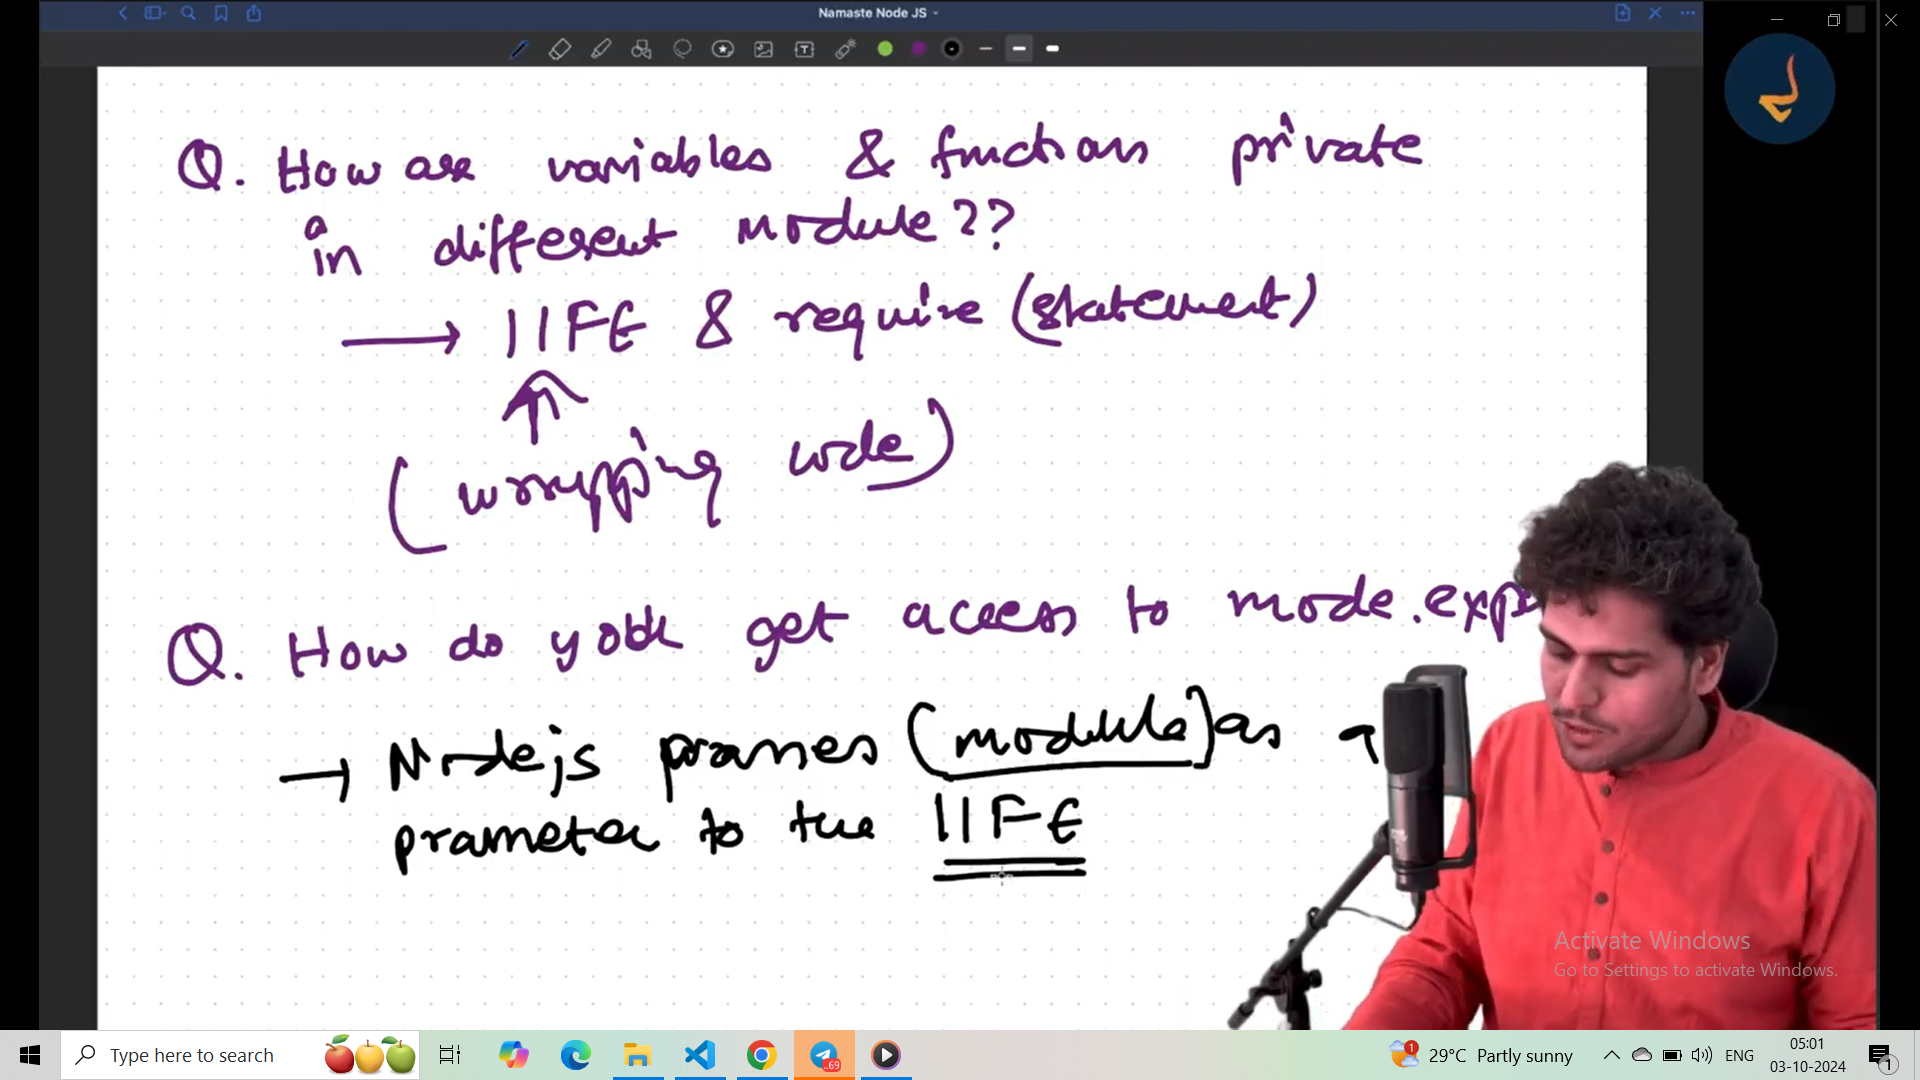 Namaste Node JS
Q. How are variables & functions private
in a different module??
→ IIFE & require (statement)
(wrapping code)
Q. How do you get access to mode.exp
→ Nodejs passes (module) as a
prameter to the IIFE
Activate Windows
Go to Settings to activate Windows.
Type here to search
69
1
29°C Partly sunny
ENG
05:01
03-10-2024
1